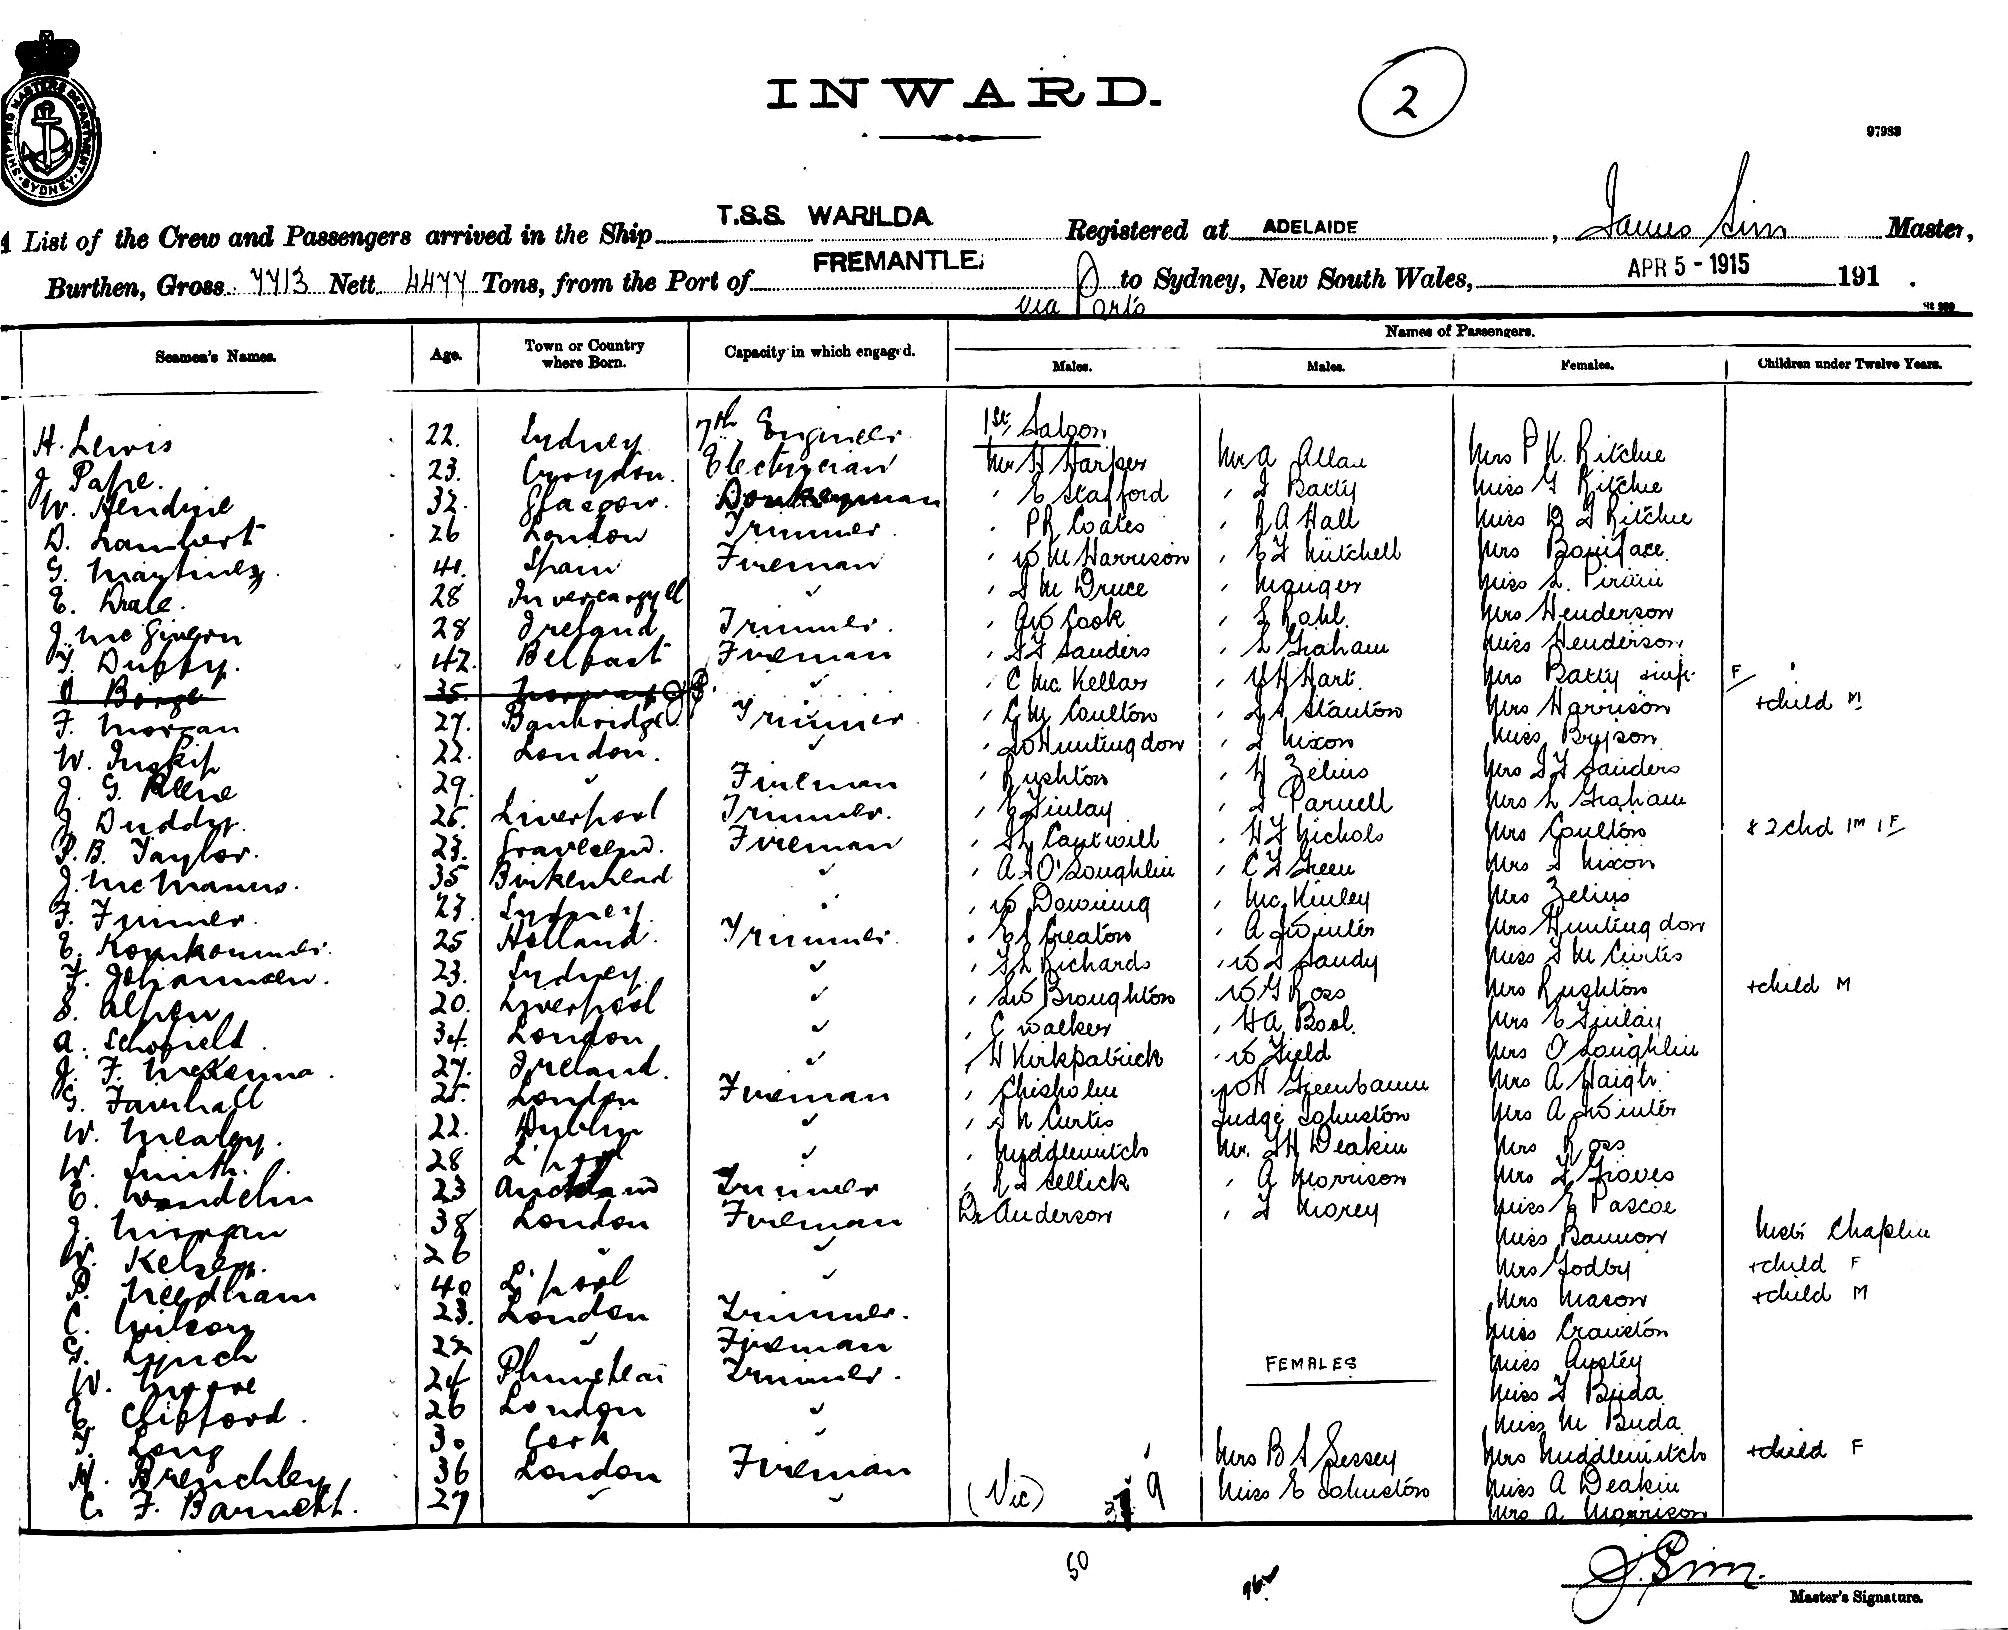 INWARD.
2
97983
SHIPPING MASTERS DEPARTMENT SYDNEY
List of the Crew and Passengers arrived in the Ship T.S.S. WARILDA Registered at ADELAIDE, James Sim Master,
Burthen, Gross 7713 Nett 4477 Tons, from the Port of FREMANTLE to Sydney, New South Wales, APR 5 - 1915 191 .
via Ports
Names of Passengers.
Seamen's Names. Age. Town or Country where Born. Capacity in which engaged. Males. Males. Females. Children under Twelve Years.
1st Saloon
H. Lewis 22. Sydney 7th Engineer
J. Pape. 23. Croydon. Electrician Mr H Harper Mr A Allan Mrs P K. Ritchie
W. Hendrie 32. Glasgow. Donkeyman " E Stafford " Batty Miss G Ritchie
D. Lambert 26 London Trimmer. " PR Coates " R A Hall Miss Ritchie
G. Martinez. 41. Spain Fireman " W M Harrison " Mitchell Mrs Boniface
E. Drale. 28 Invercargyll " " M Druce " Mauger Miss L. Pirani
J. McGivern 28 Ireland Trimmer. " AW Cook " Mrs Henderson
T. Duffy. 42. Belfast Fireman " Sanders " L Graham Miss Henderson
Borge 35. " " C Mc Kellar " Hart. Mrs Batty inft F
F. Morgan 27. Banbridge Trimmer " C M Coulton " Stanton Mrs Harrison +child M
W. Inskip 22. London. " " Huntingdon " Nixon Miss Bryson
J. G. 29. " Fireman " Rushton " H Zelius Mrs Sanders
J. Duddy. 25. Liverpool Trimmer. " E Finlay " Parnell Mrs L Graham
P. B. Taylor. 23. Gravesend. Fireman " Cantwell " Nichols Mrs Coulton & 2 chd 1M 1F
J. McManus. 35 Birkenhead " " O'Loughlin " Green Mrs Nixon
F. 27. Sydney " " W Downing " McKinley Mrs Zelius
E. 25 Holland. Trimmer. " Creaton " A Winter Mrs Huntingdon
F. Johannsen. 23. Sydney. " " Richards " W Sandy Miss M Curtis
S. Alpen 20. Liverpool " " Broughton " W G Ross Mrs Rushton +child M
A. Schofield. 34. London " " C Walker " H A Bool. Mrs E Finlay
J. F. McKenna. 27. Ireland. " " H Kirkpatrick " W Field Mrs O'Loughlin
G. Fairhall 25. London Fireman " Chisholm " Greenbaum Mrs A Haigh
W. Mealey. 22. Dublin " " Curtis Judge Johnston Mrs A Winter
W. Smith. 28 L'pool " " Middlemitch Mr. Deakin Mrs Ross
C. Wandelin 23 Auckland Trimmer " Sellick " A Morrison Mrs Groves
J. Morgan 38 London Fireman Dr Anderson " Morey Miss E Pascoe
W. Kelsey. 26 " " Miss Bannon Mstr Chaplin
Needham 40 L'pool " Mrs Godby +child F
C. Wilson 23. London Trimmer. Mrs Mason +child M
G. Lynch 22 " Fireman Miss Cranston
W. Moore 24 Plumstead Trimmer. FEMALES Miss Anstey
Clifford. 26 London " Miss Buda
T. Long 30 Cork " Miss M Buda
H. Brenchley 36 London Fireman Mrs B Sessey Mrs Middlemitch +child F
C. F. Barnett. 27 " " (Vic) 9 Miss E Johnston Miss A Deakin
Mrs A Morrison
50
96
J. Sim.
Master's Signature.